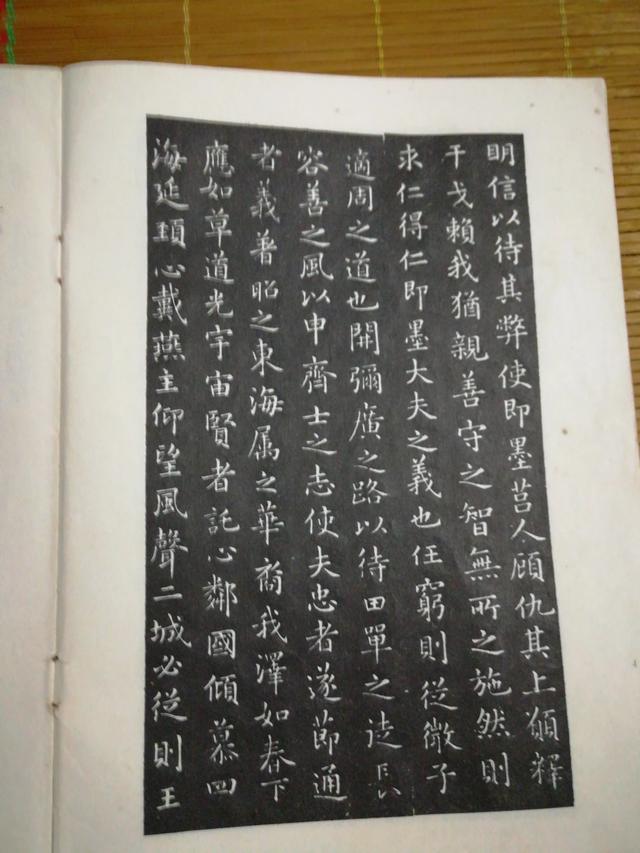 明信以待其弊使即墨莒人顧仇其上願釋
干戈賴我猶親善守之智無所之施然則
求仁得仁即墨大夫之義也任窮則從微子
適周之道也開彌廣之路以待田單之徒長
容善之風以申齊士之志使夫忠者遂節通
者義著昭之東海属之華裔我澤如春下
應如草道光宇宙賢者託心鄰國傾慕四
海延頸心戴燕主仰望風聲二城必從則王